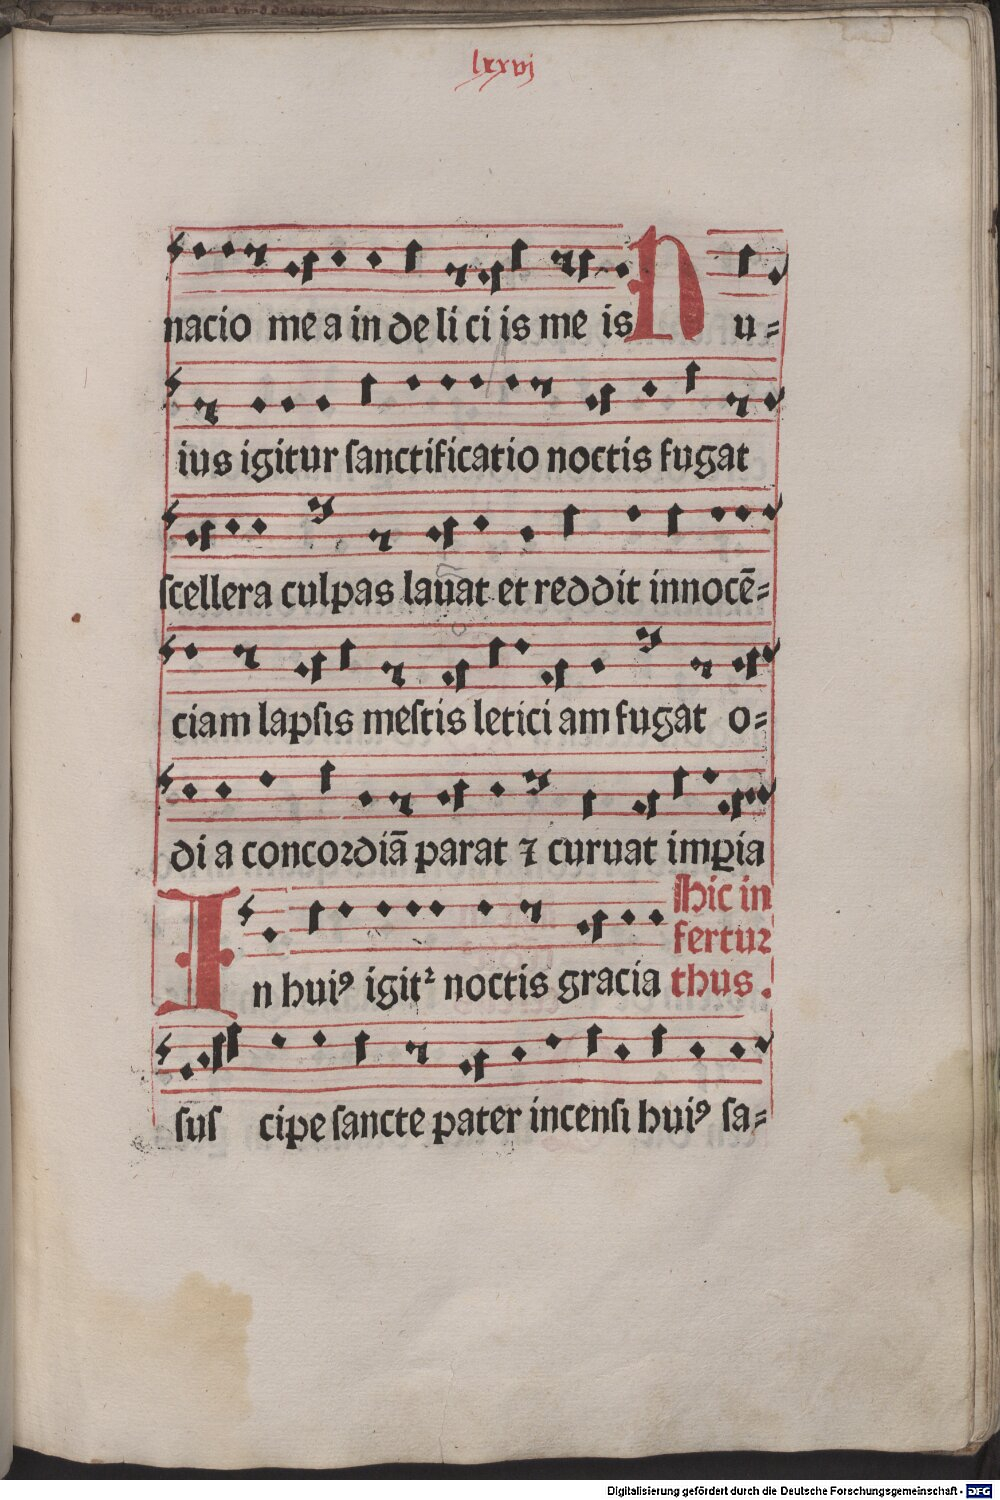 lxxvj
nacio me a in de li ci is me is N u=
ius igitur ſanctificatio noctis fugat
ſcellera culpas lauat et reddit innocē=
ciam lapſis meſtis letici am fugat o=
di a concordiā parat ⁊ curuat impia
Hic in
fertur
In huiꝰ igitᷣ noctis gracia thus.
ſuſ cipe ſancte pater incenſi huiꝰ ſa=
Digitalisierung gefördert durch die Deutsche Forschungsgemeinschaft - DFG